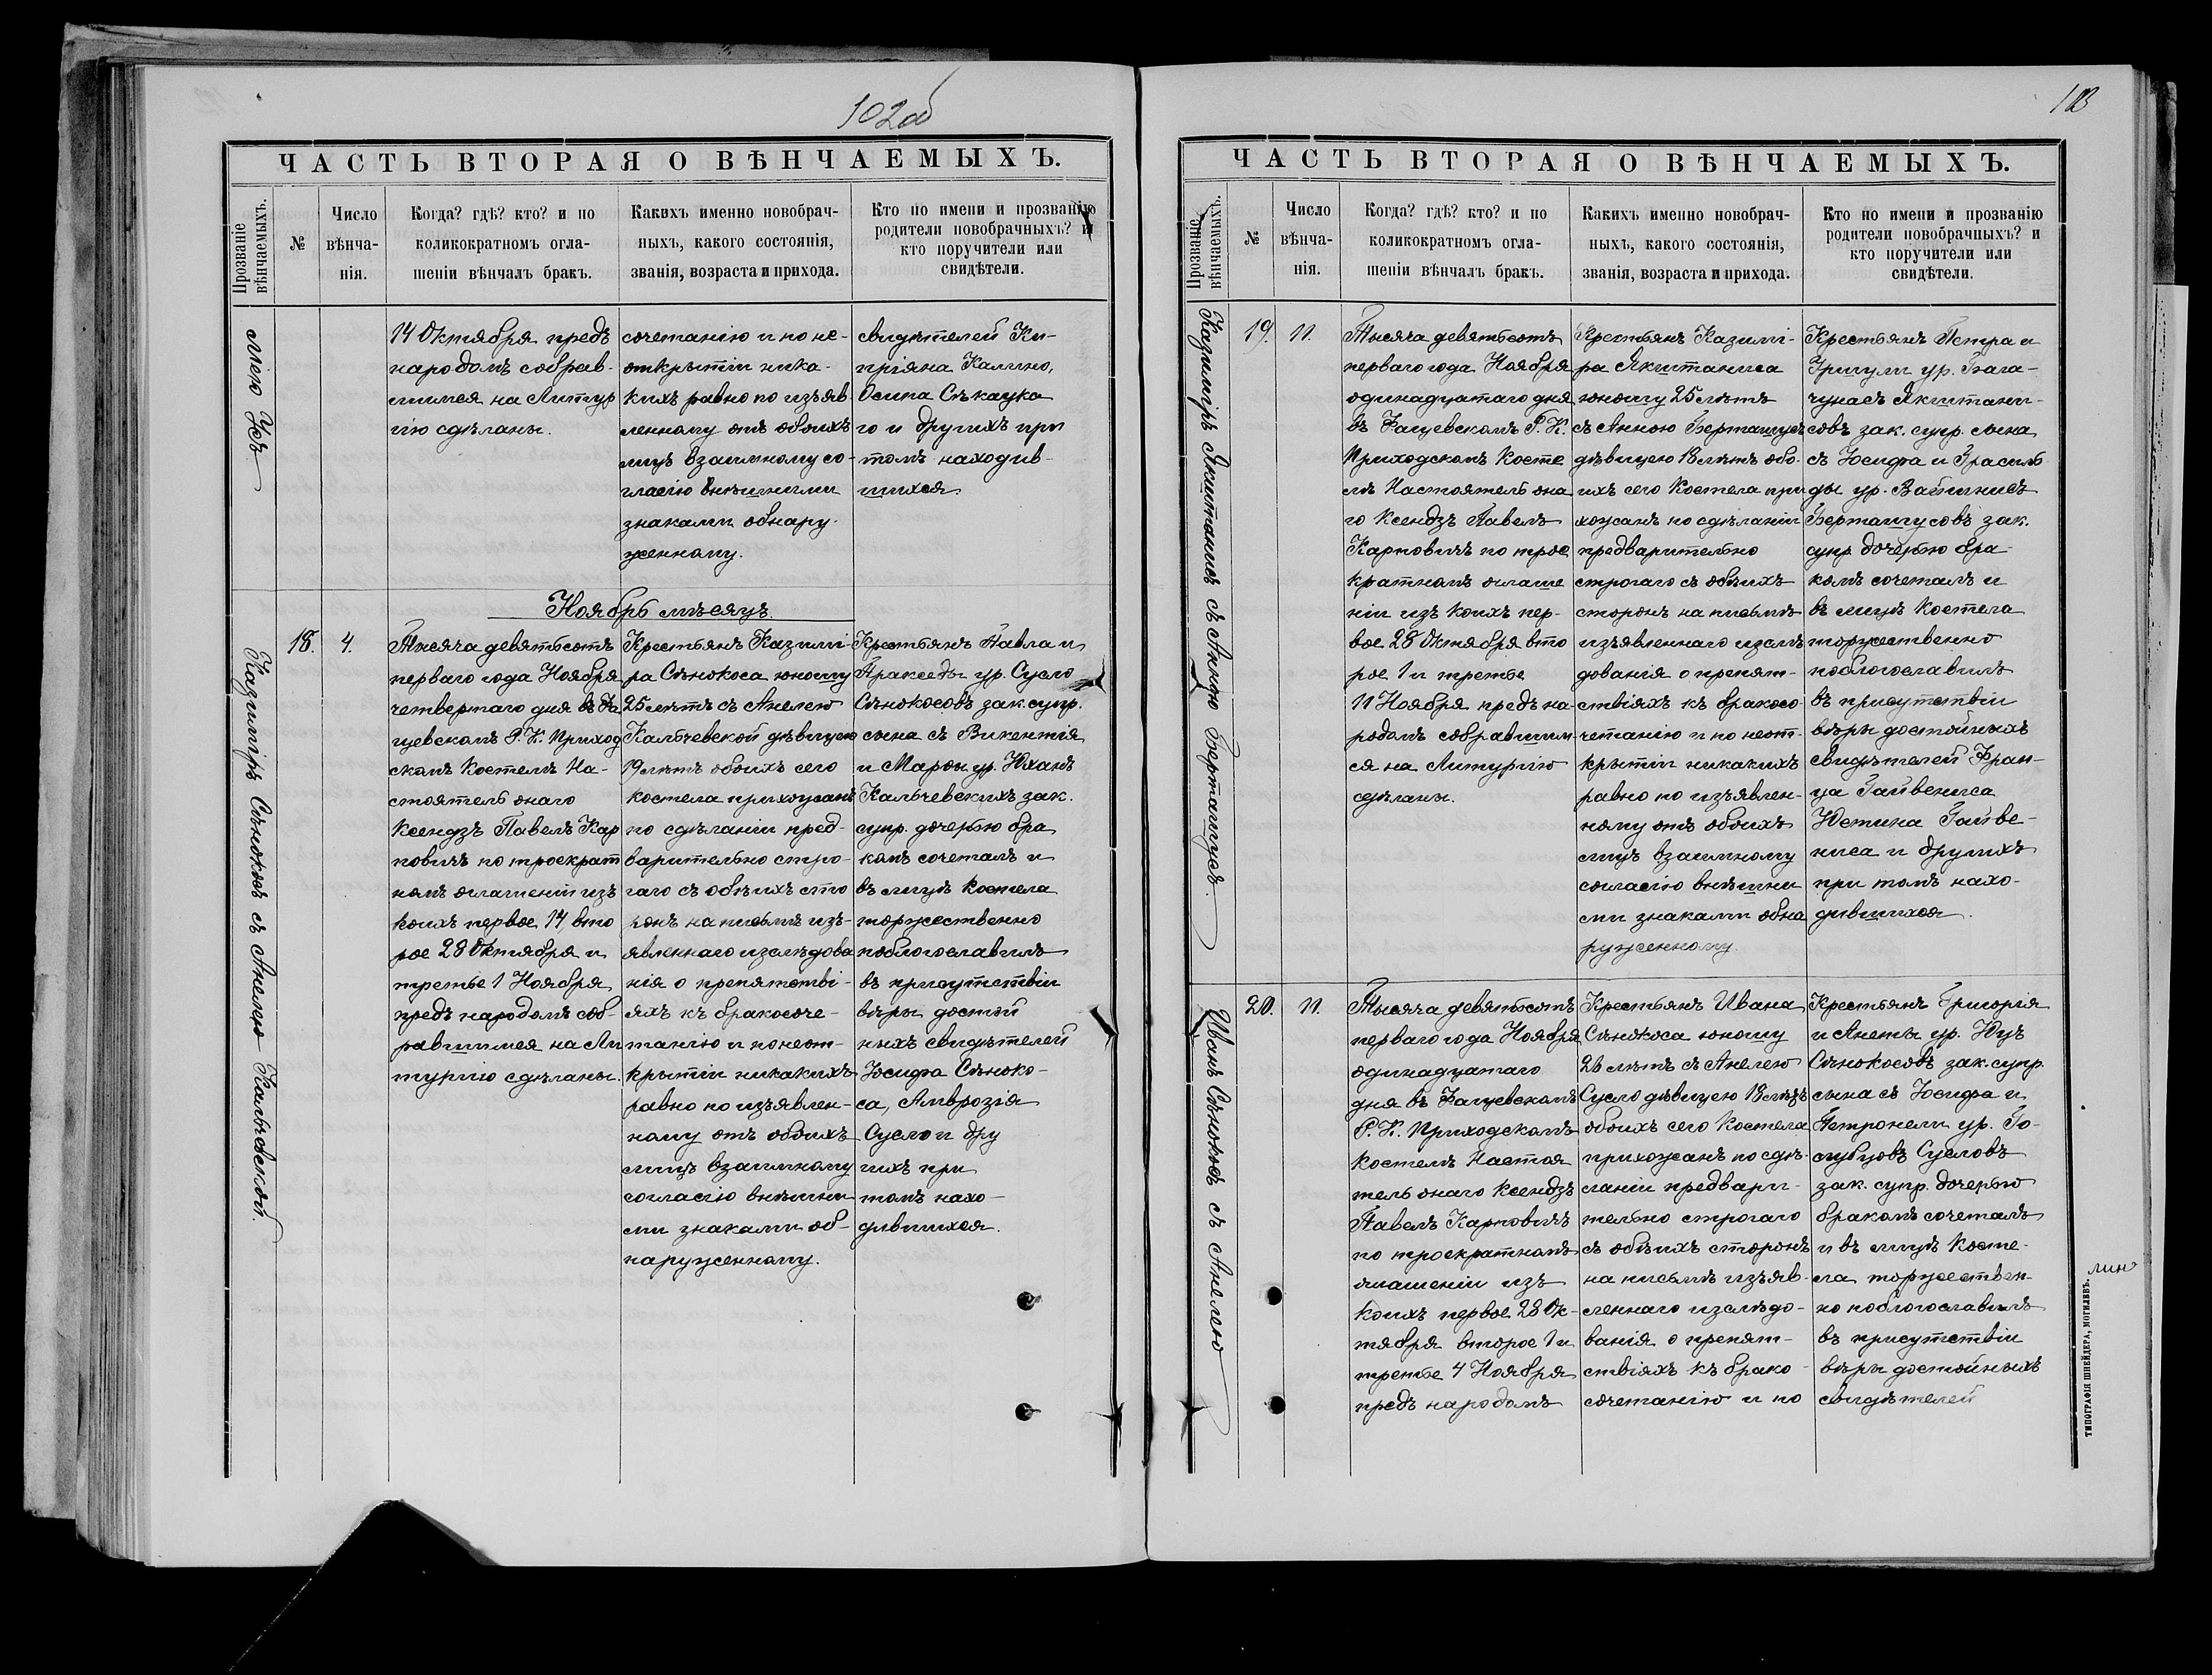 102об
ЧАСТЬ ВТОРАЯ О ВѢНЧАЕМЫХЪ.
Прозваніе
вѣнчаемыхъ.
№
Число
вѣнча-
нія.
Когда? гдѣ? кто? и по
коликократномъ огла-
шеніи вѣнчалъ бракъ.
Какихъ именно новобрач-
ныхъ, какого состоянія,
званія, возраста и прихода.
Кто по имени и прозванію
родители новобрачныхъ? и
кто поручители или
свидѣтели.
14 Октября предъ
народомъ собрав-
шимся на Литур
гію сдѣланы.
сочетанію и по не-
открытіи ника-
кихъ равно по изъяв
ленному отъ обоихъ
лицъ взаимному со-
гласію внѣшними
знаками обнару-
женному.
свидѣтелей Ки-
пріяна Калино,
Осипа
го и другихъ при
томъ находив-
шихся.
Ноябрь мѣсяцъ.
Казимиръ Сѣнокосъ съ Анелею Кальчевской.
18.
4.
Тысяча девятьсотъ
перваго года Ноября
четвертаго дня въ Фа
щевскомъ Р. К. Приход
скомъ Костелѣ На-
стоятель онаго
Ксендзъ Павелъ Кар
повичъ по троекрат
номъ оглашеніи изъ
коихъ первое 14, вто
рое 28 Октября и
третье 1 Ноября
предъ народомъ соб-
равшимся на Ли
тургію сдѣланы.
Крестьянъ Казими-
ра Сѣнокоса юношу
25 лѣтъ съ Анелею
Кальчевской дѣвицею
19 лѣтъ обоихъ сего
костела прихожанъ
по сдѣланіи пред-
варительно стро-
гаго съ обѣихъ сто
ронъ на письмѣ изъ-
явленнаго изслѣдова
нія о препятстві-
яхъ къ бракосоче-
танію и по неот-
крытіи никакихъ
равно по изъявлен-
ному отъ обоихъ
лицъ взаимному
согласію внѣшни
ми знаками об-
наруженному.
Крестьянъ Павла и
Пракседы ур. Сусло
Сѣнокосовъ зак. супр.
сына съ Викентія
и Марѳы ур. Юханъ
Кальчевскихъ зак.
супр. дочерью бра
комъ сочеталъ и
въ лицѣ Костела
торжественно
поблогославилъ
въ присутствіи
вѣры достой
ныхъ свидѣтелей
Іосифа Сѣноко-
са, Амврозія
Сусло и дру
гихъ при
томъ нахо-
дившихся.
ЧАСТЬ ВТОРАЯ О ВѢНЧАЕМЫХЪ.
Прозваніе
вѣнчаемыхъ.
№
Число
вѣнча-
нія.
Когда? гдѣ? кто? и по
коликократномъ огла-
шеніи вѣнчалъ бракъ.
Какихъ именно новобрач-
ныхъ, какого состоянія,
званія, возраста и прихода.
Кто по имени и прозванію
родители новобрачныхъ? и
кто поручители или
свидѣтели.
Казимиръ Якштанисъ съ Анною Берташусъ
19.
11.
Тысяча девятьсотъ
перваго года Ноября
одинадцатаго дня
въ Фащевскомъ Р. К.
Приходскомъ Косте
лѣ Настоятель она
го Ксендзъ Павелъ
Карповичъ по трое
кратномъ оглаше
ніи изъ коихъ пер-
вое 28 Октября вто
рое 1 и третье
11 Ноября предъ на-
родомъ собравшим-
ся на Литургію
сдѣланы.
Крестьянъ Казими-
ра Якштаниса
юношу 25 лѣтъ
съ Анною Берташусъ
дѣвицею 18 лѣтъ обо-
ихъ сего Костела при
хожанъ по сдѣланіи
предварительно
строгаго съ обѣихъ
сторонъ на письмѣ
изъявленнаго изслѣ
дованія о препят-
ствіяхъ къ бракосо-
четанію и по неот-
крытіи никакихъ
равно по изъявлен-
ному отъ обоихъ
лицъ взаимному
согласію внѣшни
ми знаками обна
руженному.
Крестьянъ Петра и
ур.
Якштани-
совъ зак. супр. сына
съ Іосифа и
ды ур.
Берташусовъ зак.
супр. дочерью бра-
комъ сочеталъ и
въ лицѣ Костела
торжественно
поблогославилъ
въ присутствіи
вѣры достойныхъ
свидѣтелей Фран-
ца Гайвениса
Юстина Гайве-
ниса и другихъ
при томъ нахо-
дившихся.
Иванъ Сѣнокосъ съ Анелею
20.
11.
Тысяча девятьсотъ
перваго года Ноября
одинадцатаго
дня въ Фащевскомъ
Р. К. Приходскомъ
Костелѣ Настоя
тель онаго Ксендзъ
Павелъ Карповичъ
по троекратномъ
оглашеніи изъ
коихъ первое 28 Ок-
тября второе 1 и
третье 4 Ноября
предъ народомъ
Крестьянъ Ивана
Сѣнокоса юношу
26 лѣтъ съ Анелею
Сусло дѣвицею 18 лѣтъ
обоихъ сего Костела
прихожанъ по сдѣ-
ланіи предвари-
тельно строгаго
съ обѣихъ сторонъ
на письмѣ изъяв-
леннаго изслѣдо-
ванія о препят-
ствіяхъ къ брако-
сочетанію и по
Крестьянъ Григорія
и Анеты ур. Юцъ
Сѣнокосовъ зак. супр.
сына съ Іосифа и
Петронели ур. Го-
лубцовъ Сусловъ
зак. супр. дочерью
бракомъ сочеталъ
и въ лицѣ Косте-
ла торжествен-
но поблогославилъ
въ присутствіи
вѣры достойныхъ
свидѣтелей
ТИПОГРАФІЯ ШНЕЙДЕРА, МОГИЛЕВЪ.